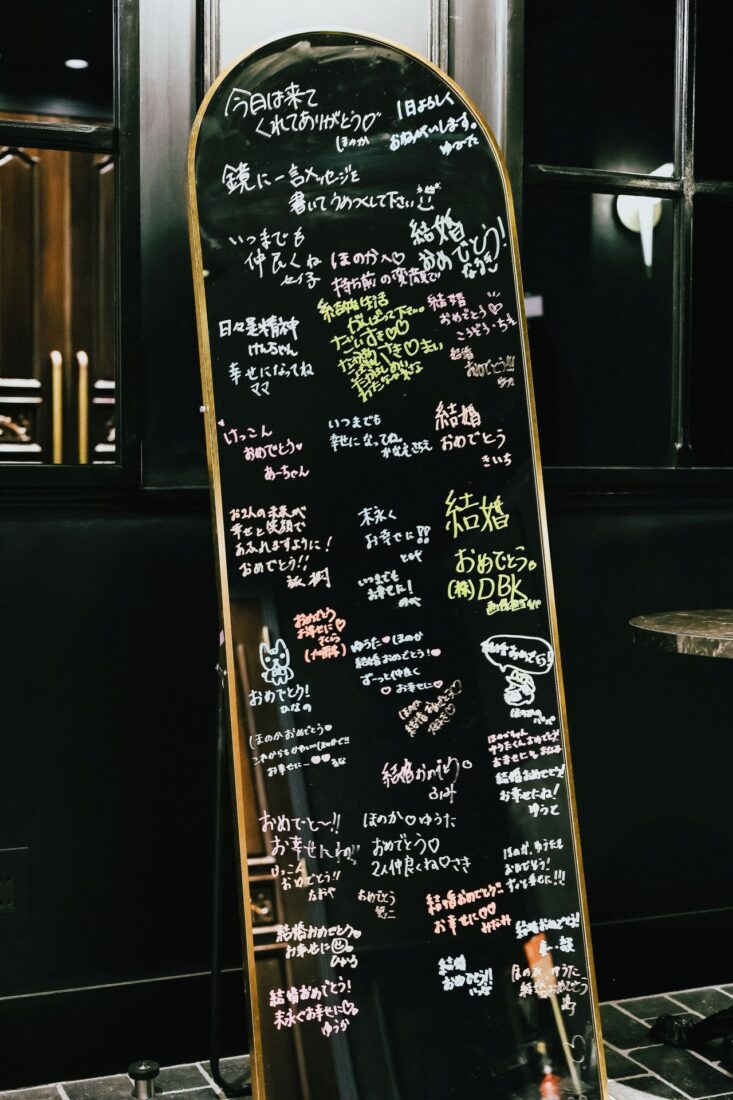 今日は来て
くれてありがとう♡
ほのか
1日よろしく
おねがいします。
ゆうた
鏡に一言メッセージを
書いてうめつくして下さい
いつまでも
仲良くね
結婚
おめでとう!
ほのかへ♡
持ち前の変顔で
結婚生活
がんばって下さい。
だいすき♡♡
結婚
おめでとう♡
こうぞう・ちえ
結婚
おめでとう!!
日々是精神
けんちゃん
幸せになってね
ママ
けっこん
おめでとう♥
あーちゃん
いつまでも
幸せになってね。
かなえ
結婚
おめでとう
きいち
お2人の未来が
幸せと笑顔で
あふれますように!
おめでとう!!
末永く
お幸せに!!
ともや
結婚
おめでとう。
(株)DBK
いつまでも
お幸せに!
のべ
おめでとう
お幸せに♡
さくら
おめでとう!
ひなの
ゆうた♥ほのか
結婚おめでとう!♥
ずっと仲良く
♥お幸せに♥
結婚おめでとう!
ほのかの
パパ
ほのか
結婚おめでとう
ほのかおめでとう♥
これからもかわいいほのかで!!
お幸せに〜♥♥るな
ほのかちゃん
ゆうたくんおめでとう!
お幸せに
結婚おめでとう!
お幸せにね!
ゆうと
結婚おめでとう。
ふみ
おめでと〜!!
お幸せにね!!
ほのか♡ゆうた
おめでとう♡
2人仲良くね♡さき
けっこん
おめでとう!!
なおや
おめでとう
ほのか、ゆうたも
おめでとう!
ずっと幸せに!!!
結婚おめでとう!!
お幸せに♡♡
みなみ
結婚おめでとう!
結婚おめでとう♥
お幸せに
ひかる
結婚
おめでとう!!
ほのか、ゆうた
結婚おめでとう
結婚おめでとう!
末永くお幸せに♡。
ゆうか